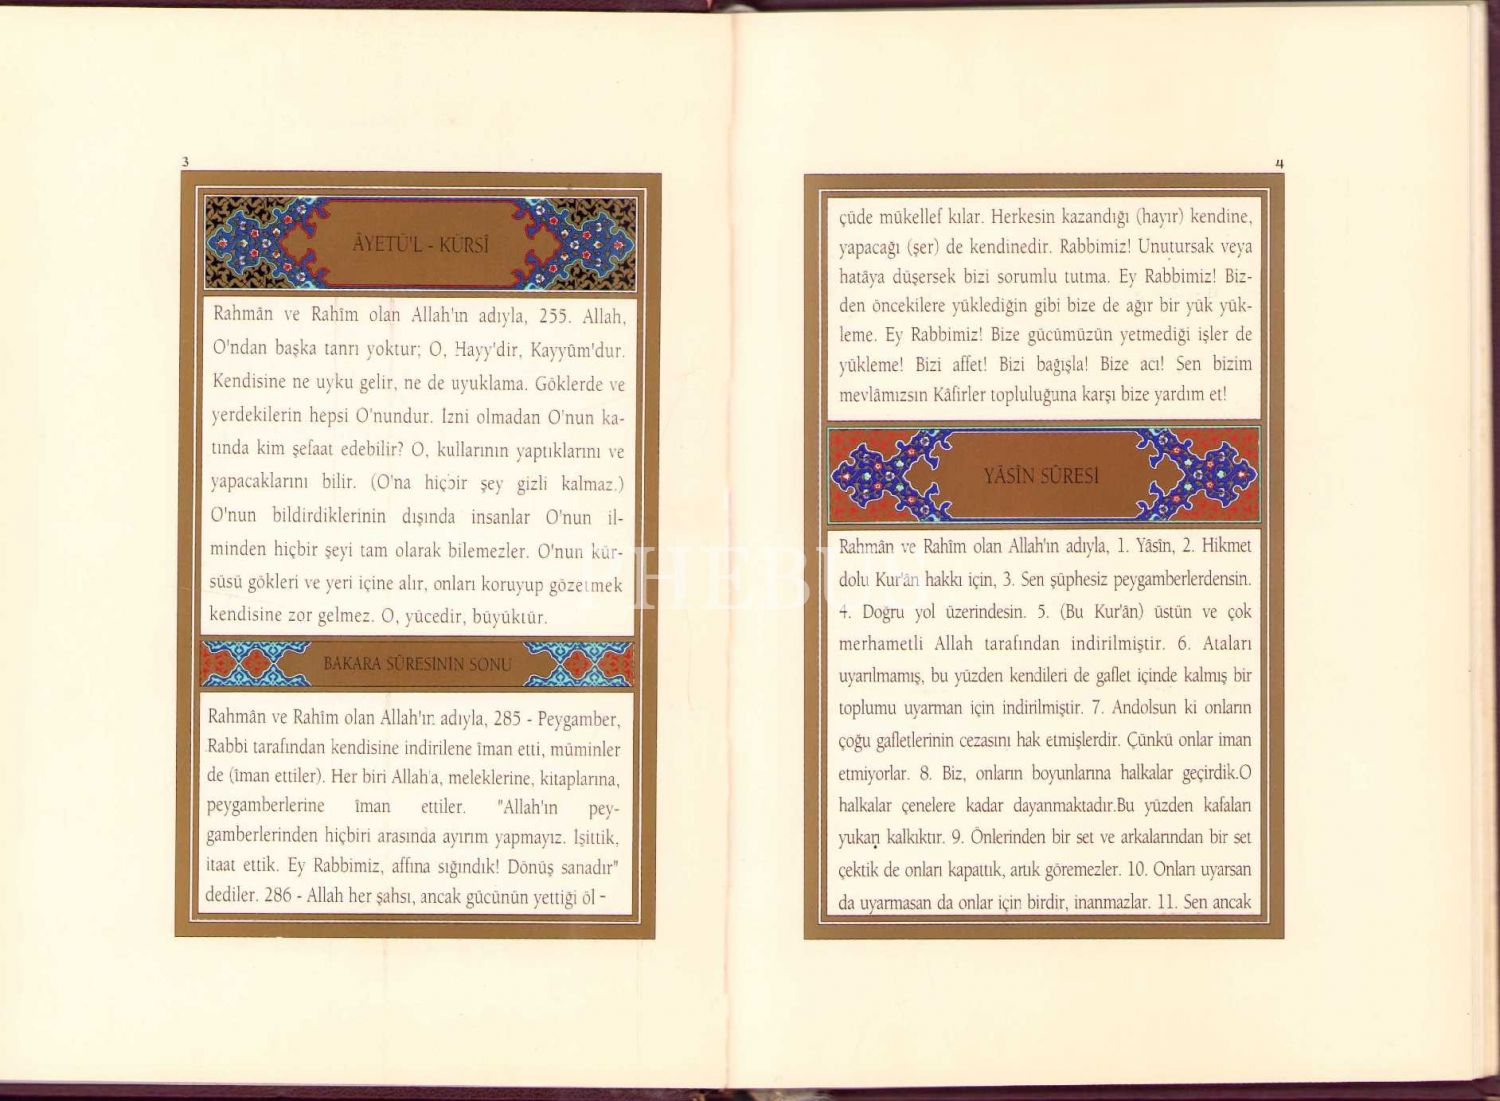 3
ÂYETÜ'L - KÜRSÎ
Rahmân ve Rahîm olan Allah'ın adıyla, 255. Allah,
O'ndan başka tanrı yoktur; O, Hayy'dir, Kayyûm'dur.
Kendisine ne uyku gelir, ne de uyuklama. Göklerde ve
yerdekilerin hepsi O'nundur. İzni olmadan O'nun ka-
tında kim şefaat edebilir? O, kullarının yaptıklarını ve
yapacaklarını bilir. (O'na hiçbir şey gizli kalmaz.)
O'nun bildirdiklerinin dışında insanlar O'nun il-
minden hiçbir şeyi tam olarak bilemezler. O'nun kür-
süsü gökleri ve yeri içine alır, onları koruyup gözetmek
kendisine zor gelmez. O, yücedir, büyüktür.
BAKARA SÛRESİNİN SONU
Rahmân ve Rahîm olan Allah'ın adıyla, 285 - Peygamber,
Rabbi tarafından kendisine indirilene îman etti, müminler
de (îman ettiler). Her biri Allah'a, meleklerine, kitaplarına,
peygamberlerine îman ettiler. "Allah'ın pey-
gamberlerinden hiçbiri arasında ayırım yapmayız. İşittik,
itaat ettik. Ey Rabbimiz, affına sığındık! Dönüş sanadır"
dediler. 286 - Allah her şahsı, ancak gücünün yettiği öl -
4
çüde mükellef kılar. Herkesin kazandığı (hayır) kendine,
yapacağı (şer) de kendinedir. Rabbimiz! Unutursak veya
hatâya düşersek bizi sorumlu tutma. Ey Rabbimiz! Biz-
den öncekilere yüklediğin gibi bize de ağır bir yük yük-
leme. Ey Rabbimiz! Bize gücümüzün yetmediği işler de
yükleme! Bizi affet! Bizi bağışla! Bize acı! Sen bizim
mevlâmızsın Kâfirler topluluğuna karşı bize yardım et!
YÂSÎN SÛRESİ
Rahmân ve Rahîm olan Allah'ın adıyla, 1. Yâsîn, 2. Hikmet
dolu Kur'ân hakkı için, 3. Sen şüphesiz peygamberlerdensin.
4. Doğru yol üzerindesin. 5. (Bu Kur'ân) üstün ve çok
merhametli Allah tarafından indirilmiştir. 6. Ataları
uyarılmamış, bu yüzden kendileri de gaflet içinde kalmış bir
toplumu uyarman için indirilmiştir. 7. Andolsun ki onların
çoğu gafletlerinin cezasını hak etmişlerdir. Çünkü onlar iman
etmiyorlar. 8. Biz, onların boyunlarına halkalar geçirdik.O
halkalar çenelere kadar dayanmaktadır.Bu yüzden kafaları
yukarı kalkıktır. 9. Önlerinden bir set ve arkalarından bir set
çektik de onları kapattık, artık göremezler. 10. Onları uyarsan
da uyarmasan da onlar için birdir, inanmazlar. 11. Sen ancak
PHEBUS